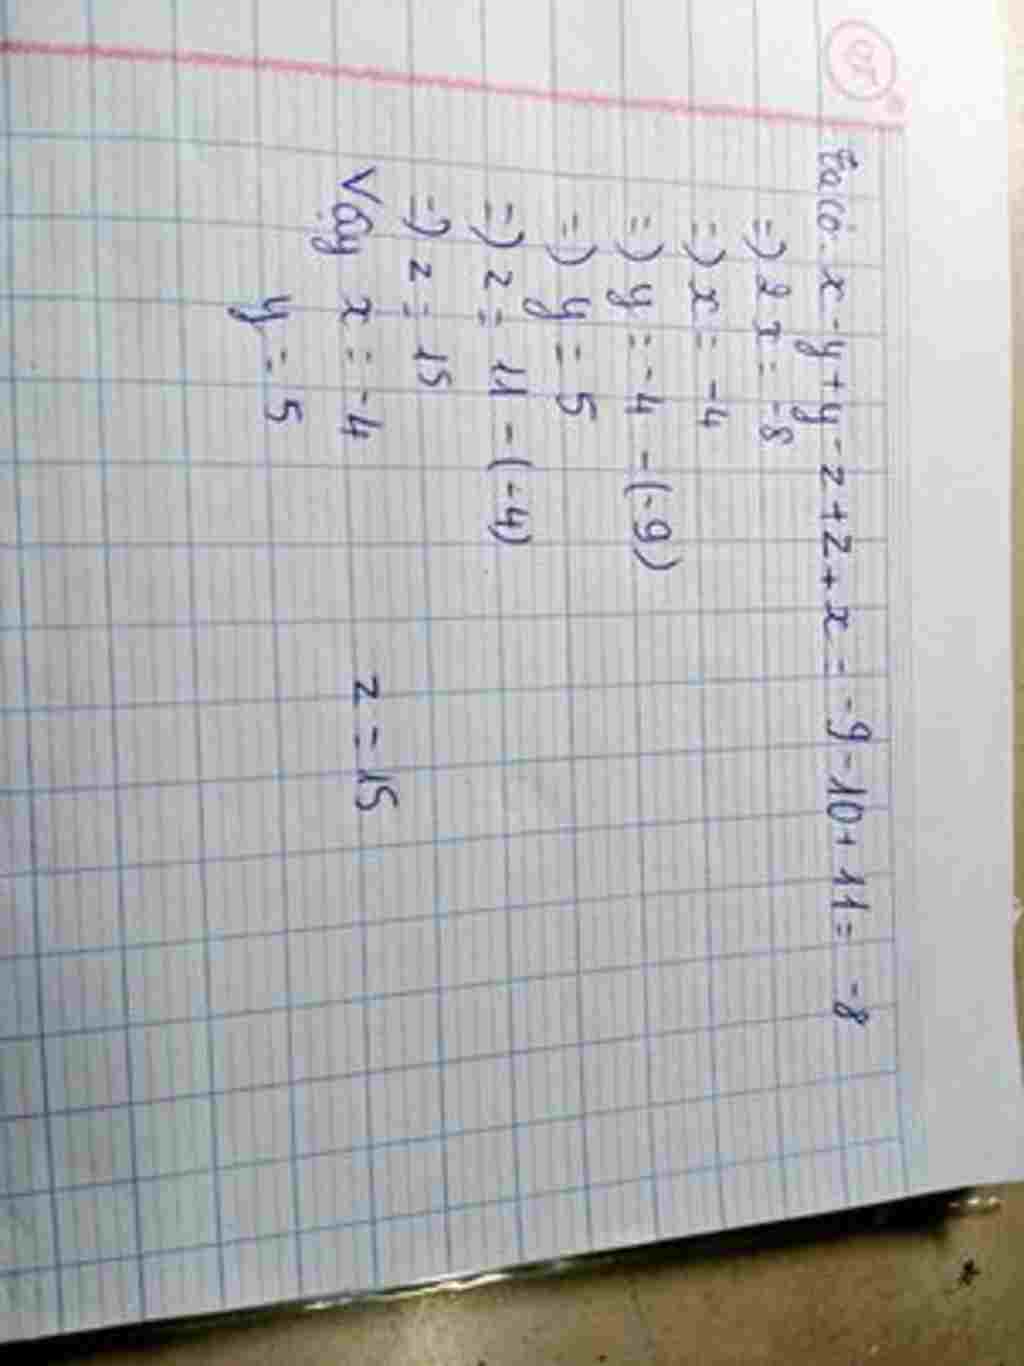 Ta có: x - y + y - z + z + x = -9 - 10 + 11 = -8
=) 2x = -8
=) x = -4
=) y = -4 - (-9)
=) y = 5
=) z = 11 - (-4)
=) z = 15
Vậy x = -4 z = 15
y = 5